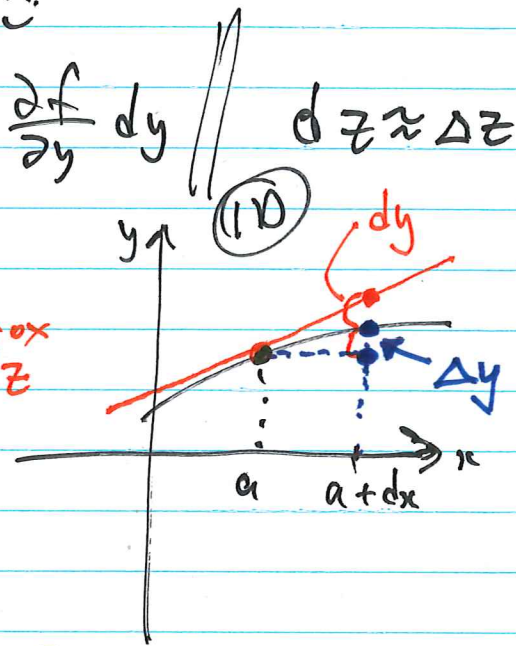 ∂f/∂y dy || dz ≈ Δz
1D
dy
y
ox
z
Δy
x
a
a + dx